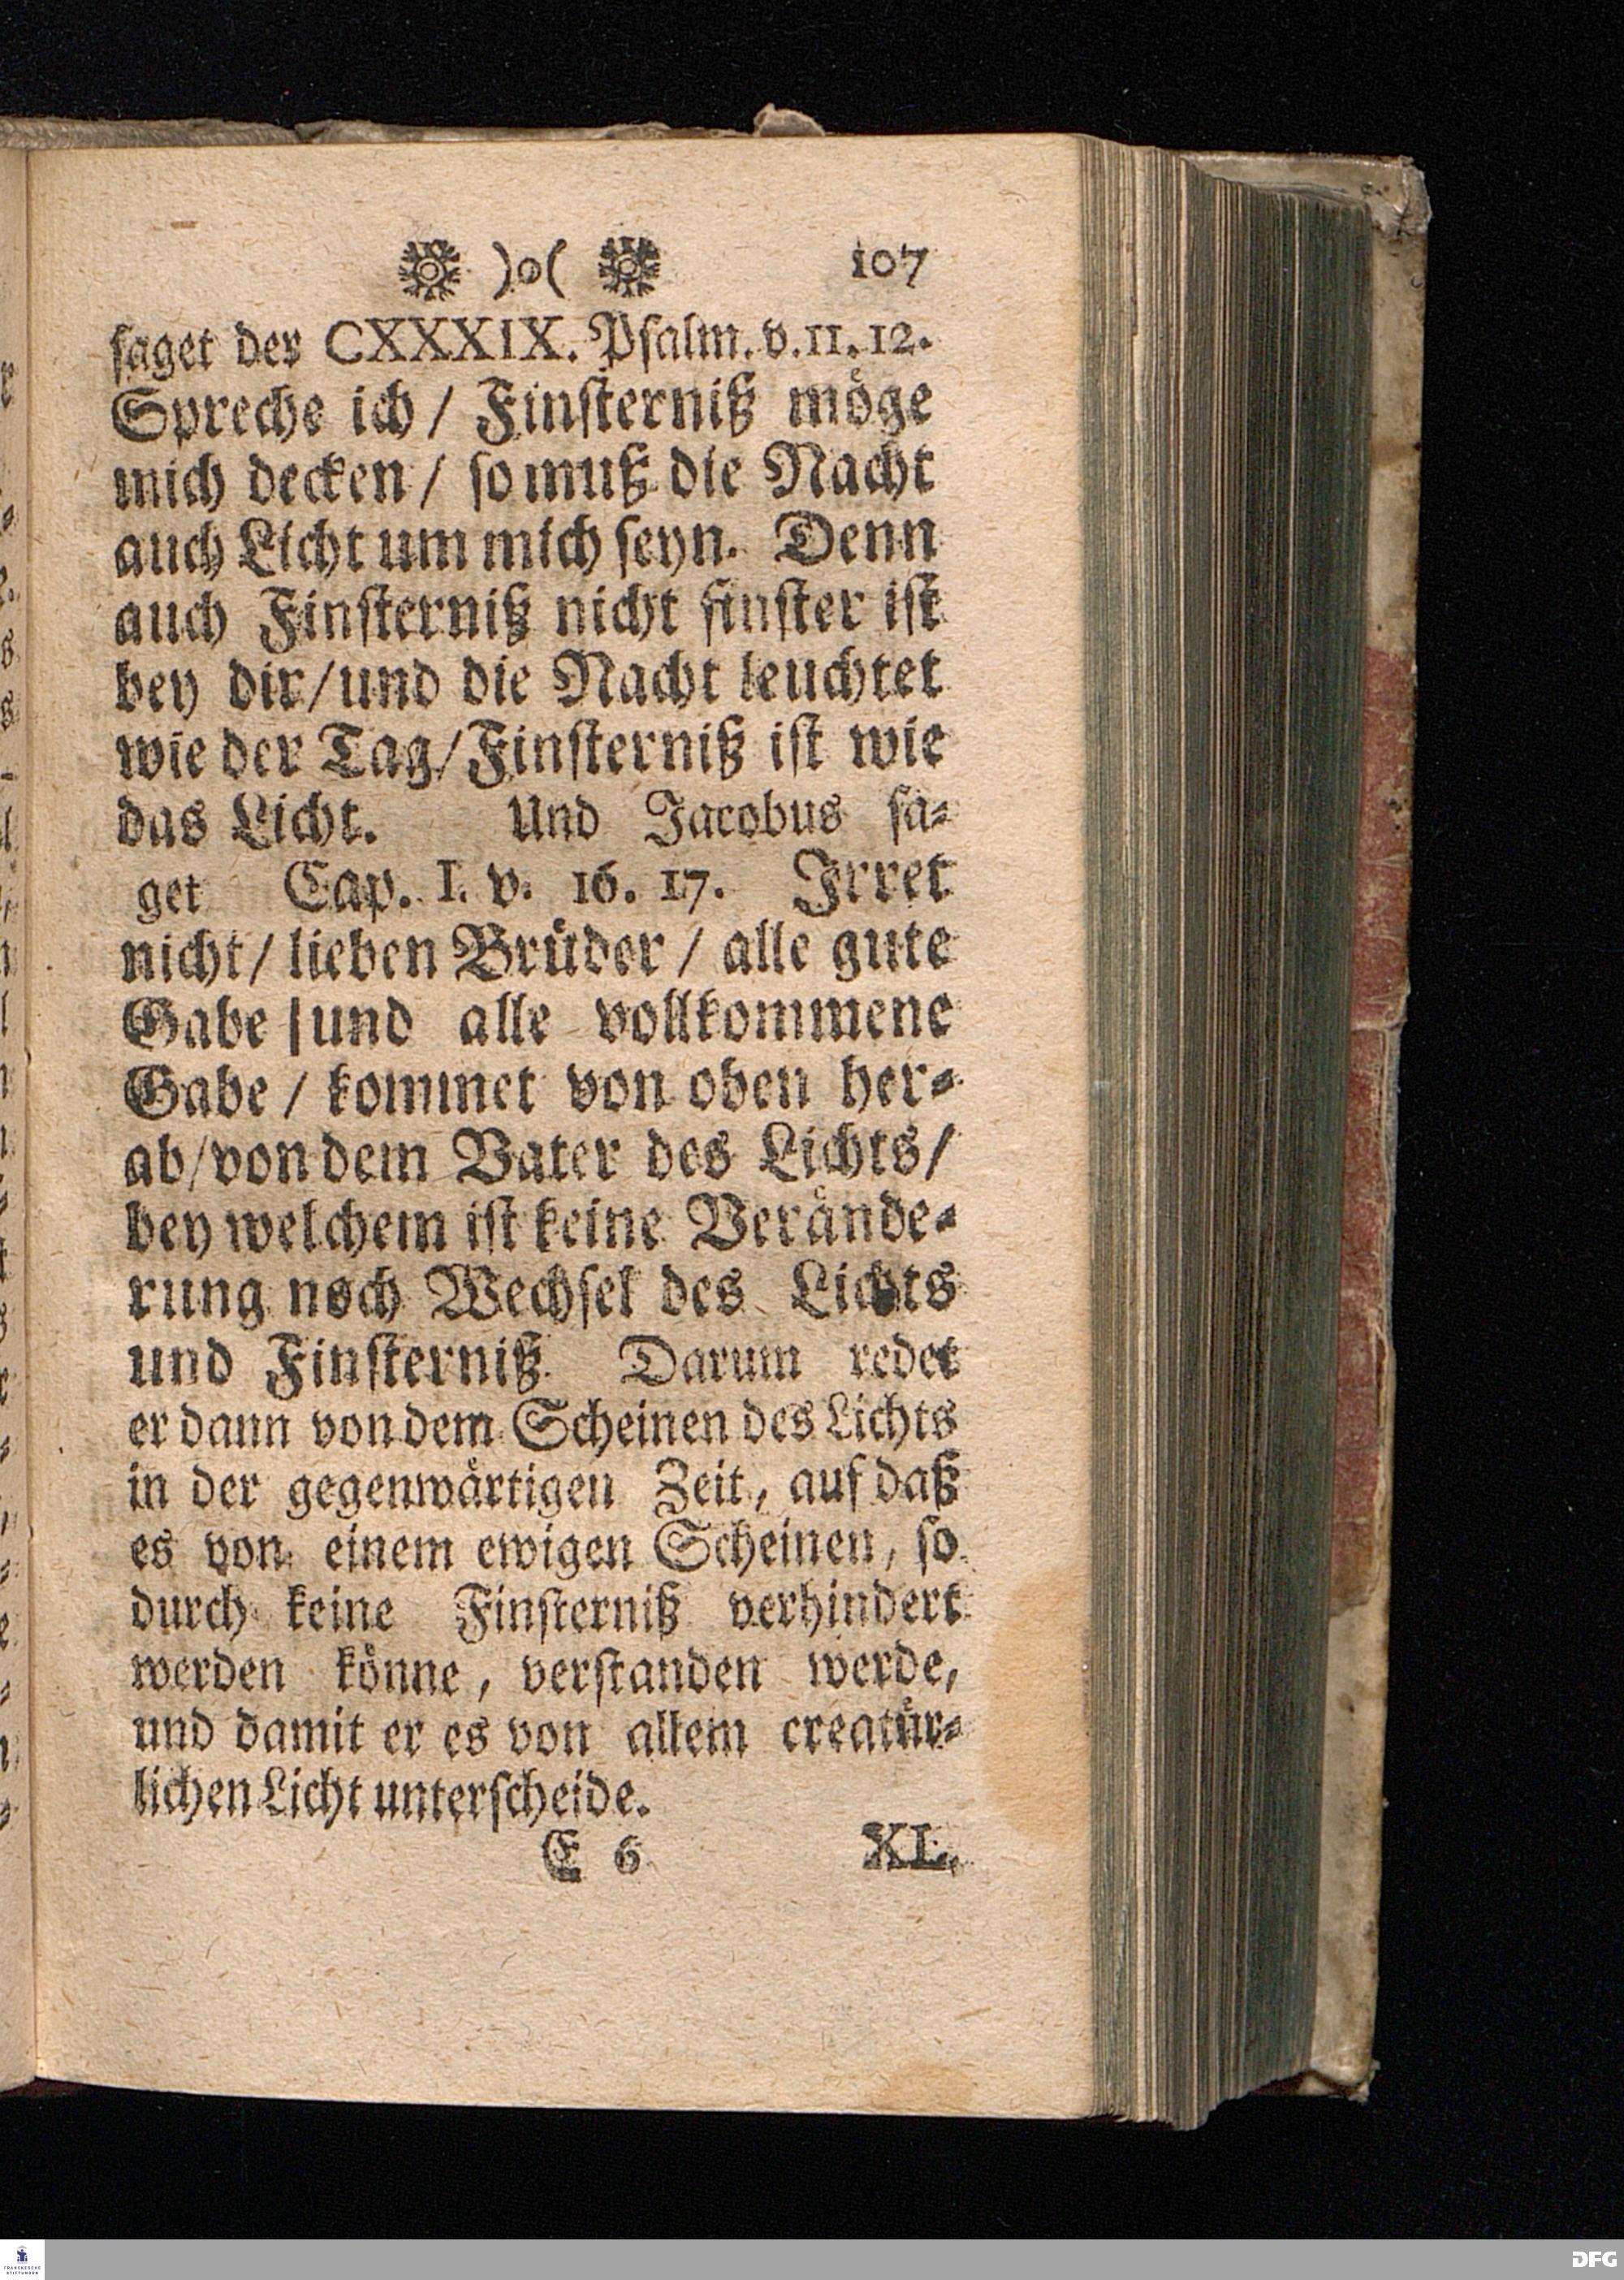 )o( 107
saget der CXXXIX. Psalm. v. 11. 12.
Spreche ich / Finsterniß möge
mich decken / so muß die Nacht
auch Licht um mich seyn. Denn
auch Finsterniß nicht finster ist
bey dir / und die Nacht leuchtet
wie der Tag / Finsterniß ist wie
das Licht. Und Jacobus sa-
get Cap. I. v. 16. 17. Irret
nicht / lieben Brüder / alle gute
Gabe / und alle vollkommene
Gabe / kommet von oben her-
ab / von dem Vater des Lichts /
bey welchem ist keine Verände-
rung noch Wechsel des Lichts
und Finsterniß. Darum redet
er dann von dem Scheinen des Lichts
in der gegenwärtigen Zeit, auf daß
es von einem ewigen Scheinen, so
durch keine Finsterniß verhindert
werden könne, verstanden werde,
und damit er es von allem creatür-
lichen Licht unterscheide.
E 6 XL.
FRANCKESCHE
STIFTUNGEN
DFG